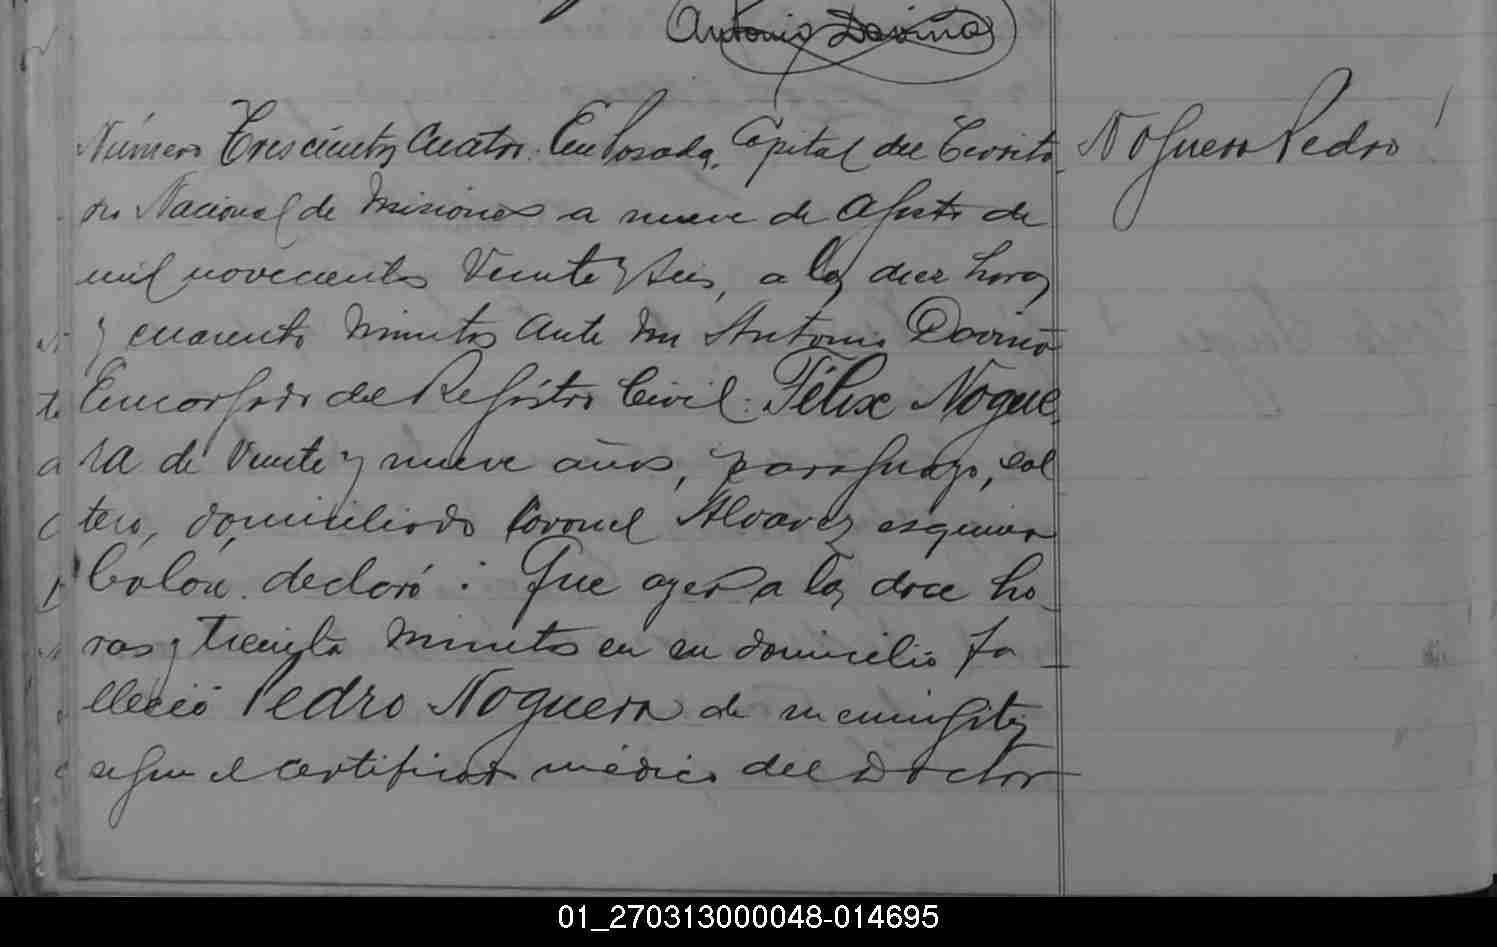 Antonio Daviña
Número Trescientos Cuatro. En Posadas, Capital del Territo Noguera Pedro
rio Nacional de Misiones a nueve de Agosto de
mil novecientos Veinte y seis, a las diez horas
y cuarenta minutos ante mi Antonio Daviña
Encargado del Registro Civil: Félix Nogue
ra de veinte y nueve años, paraguayo, sol
tero, domiciliado Coronel Alvarez esquina
Colón. declaró: Que ayer a las doce ho
ras y treinta minutos en su domicilio fa
lleció Pedro Noguera de meningitis
segun el certificado médico del Doctor
01_270313000048-014695